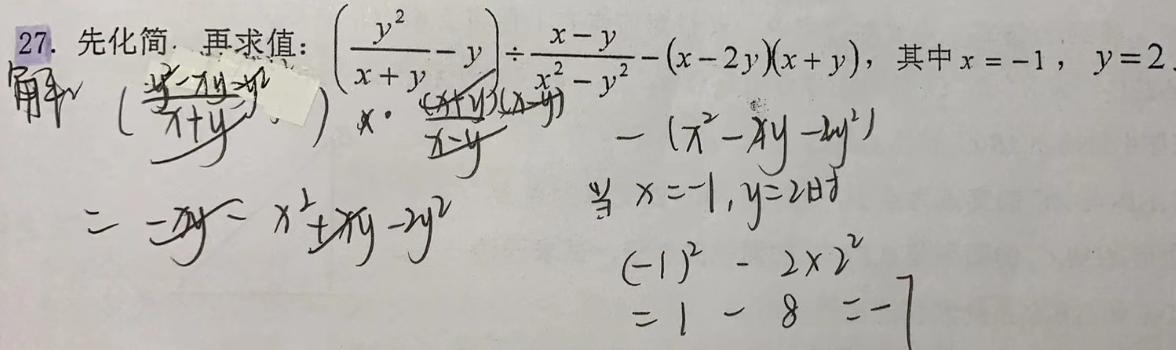 27. 先化简，再求值：(y²/(x+y) - y) ÷ (x-y)/(x²-y²) - (x-2y)(x+y)，其中 x=-1，y=2.
解 ((y²-xy-y²)/(x+y)) × · ((x+y)(x-y))/(x-y) - (x²-xy-2y²)
= -xy - x²+xy-2y²
当 x=-1, y=2时
(-1)² - 2×2²
= 1 - 8 =-7